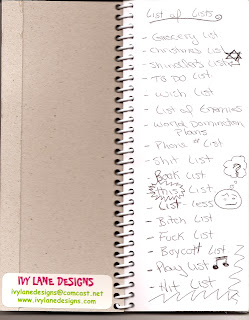 List of Lists
- Grocery List
- Christmas List
- Shindler's List
- TO DO List
- Wish List
- List of Enemies
- World Domination Plans
- Phone # List
- Shit List
- Book List
- this List
- List-less
- Bitch List
- Fuck List
- Boycott List
- Play List
- Hit List
?
IVY LANE DESIGNS
ivylanedesigns@comcast.net
www.ivylanedesigns.com